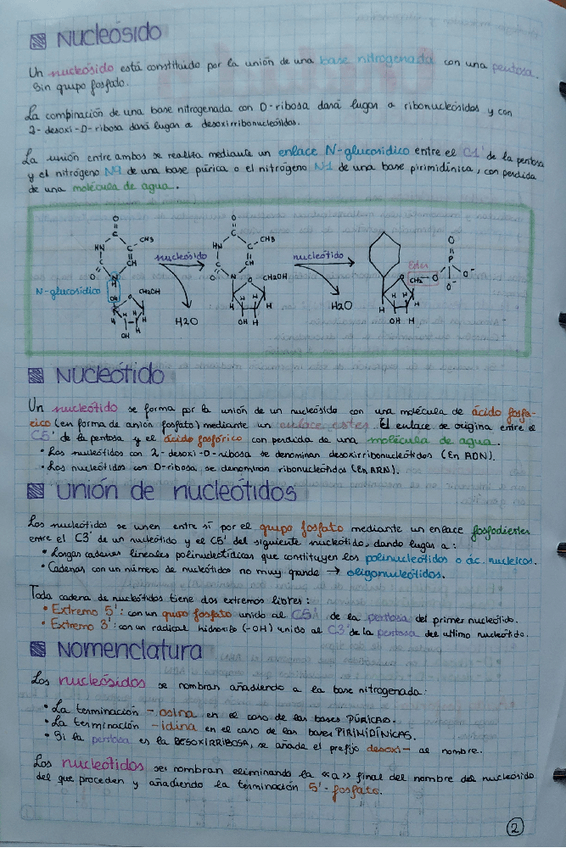 Nucleósido
Un nucleósido está constituido por la unión de una base nitrogenada con una pentosa.
Sin grupo fosfato.
La combinación de una base nitrogenada con D-ribosa dará lugar a ribonucleósidos y con
2-desoxi-D-ribosa dará lugar a desoxirribonucleósidos.
La unión entre ambos se realiza mediante un enlace N-glucosídico entre el C1' de la pentosa
y el nitrógeno N9 de una base púrica o el nitrógeno N-1 de una base pirimidínica, con perdida
de una molécula de agua.
O
C
HN
C
CH3
CH
O
N
H
N-glucosídico
OH
CH2OH
H
H
OH
nucleósido
H2O
O
C
HN
C
CH3
CH
O
N
O
CH2OH
H
H
OH H
nucleótido
H2O
Ester
O
CH2
O
O
P
O-
O-
H
H
OH H
Nucleótido
Un nucleótido se forma por la unión de un nucleósido con una molécula de ácido fosfó-
rico (en forma de anion fosfato) mediante un enlace ester. El enlace se origina entre el
C5' de la pentosa y el ácido fosfórico con perdida de una molécula de agua.
• Los nucleótidos con 2-desoxi-D-ribosa se denominan desoxirribonucleótidos (En ADN).
• Los nucleótidos con D-ribosa se denominan ribonucleótidos (en ARN).
Unión de nucleótidos
Los nucleótidos se unen entre sí por el grupo fosfato mediante un enlace fosfodiester
entre el C3' de un nucleótido y el C5' del siguiente nucleótido, dando lugar a:
• Largas cadenas lineales polinucleotídicas que constituyen los polinucleótidos o ác. nucleicos.
• Cadenas con un número de nucleótidos no muy grande → oligonucleótidos.
Toda cadena de nucleótidos tiene dos extremos libres:
• Extremo 5': con un grupo fosfato unido al C5' de la pentosa del primer nucleótido.
• Extremo 3': con un radical hidroxilo (-OH) unido al C3' de la pentosa del ultimo nucleótido.
Nomenclatura
Los nucleósidos se nombran añadiendo a la base nitrogenada:
• La terminación -osina en el caso de las bases PÚRICAS.
• La terminación -idina en el caso de las bases PIRIMIDÍNICAS.
• Si la pentosa es la DESOXIRRIBOSA, se añade el prefijo desoxi- al nombre.
Los nucleótidos se nombran eliminando la «a» final del nombre del nucleósido
del que proceden y añadiendo la terminación 5'-fosfato.
2